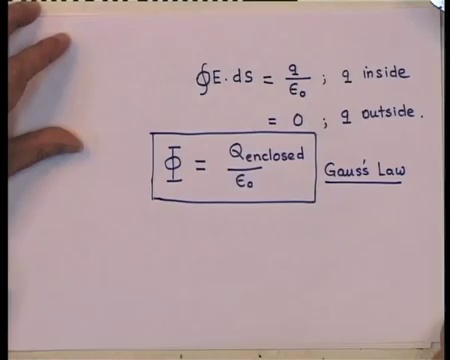 ∮E.dS = q/ε₀ ; q inside
= 0 ; q outside.
Φ = Qenclosed/ε₀ Gauss's Law